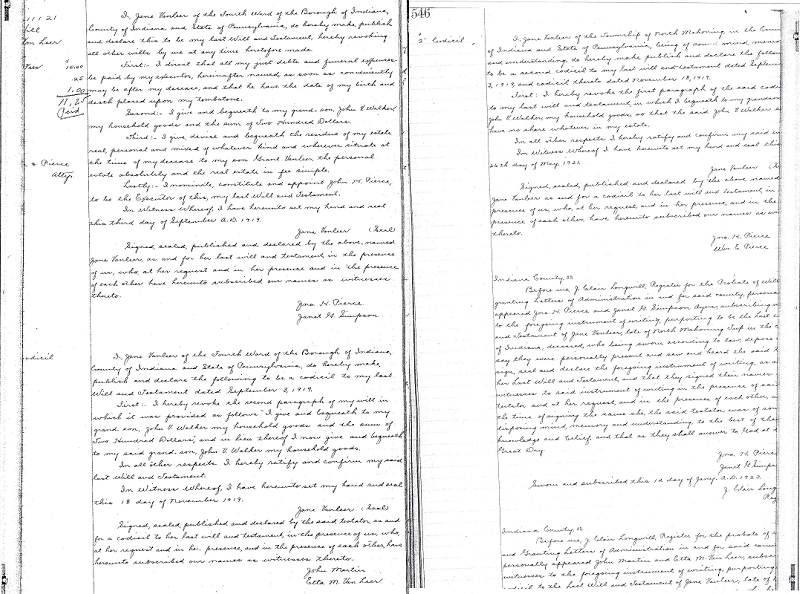 11121
Will
Van Leer
I, Jane Vanleer of the Fourth Ward of the Borough of Indiana,
County of Indiana and State of Pennsylvania, do hereby make, publish
and declare this to be my last Will and Testament, hereby revoking
all other wills by me at any time heretofore made.
First:- I direct that all my just debts and funeral expenses
be paid by my executor, hereinafter named as soon as conveniently
may be after my decease, and that he have the date of my birth and
death placed upon my tombstone.
Second:- I give and bequeath to my grand-son, John V. Walker
my household goods and the sum of Two Hundred Dollars.
Third:- I give devise and bequeath the residue of my estate
real, personal and mixed of whatever kind and wherever situate at
the time of my decease to my son Grant Vanleer, the personal
estate absolutely and the real estate in fee simple.
Lastly:- I nominate, constitute and appoint John H. Pierce,
to be the Executor of this, my last Will and Testament.
In Witness Whereof, I have hereunto set my hand and seal
this third day of September A.D. 1919.
Jane Vanleer (Seal)
Signed, sealed, published and declared by the above, named
Jane Vanleer, as and for her last will and testament, in the presence
of us, who, at her request and in her presence and in the presence
of each other have hereunto subscribed our names as witnesses
thereto.
Jno. H. Pierce
Janet G. Simpson
$10.00
.25
1.00
11.25
Paid
& Pierce
Attys.
codicil
I, Jane Vanleer of the Fourth Ward of the Borough of Indiana,
County of Indiana and State of Pennsylvania, do hereby make,
publish and declare the following to be a codicil to my last
Will and Testament dated September 3, 1919.
First:- I hereby revoke the second paragraph of my will in
which it was provided as follows "I give and bequeath to my
grand son, John V. Walker my household goods and the sum of
Two Hundred Dollars", and in lieu thereof I now give and bequeath
to my said grand-son, John V. Walker my household goods.
In all other respects I hereby ratify and confirm my said
last Will and Testament.
In Witness Whereof, I have hereunto set my hand and seal
this 18 day of November 1919.
Jane Vanleer (Seal)
Signed, sealed, published and declared by the said testator, as and
for a codicil to her last will and testament, in the presence of us, who,
at her request and in her presence, and in the presence of each other, have
hereunto subscribed our names as witnesses thereto.
John Martin
Etta M. Van Leer
546
2" Codicil.
I, Jane Vanleer of the Township of North Mahoning, in the Coun
of Indiana and State of Pennsylvania, being of sound mind, mem
and understanding, do hereby make, publish and declare the follow
to be a second codicil to my last will and testament dated Septem
3, 1919, and codicil thereto dated November 18, 1919.
First: I hereby revoke the first paragraph of the said codi
to my last will and testament, in which I bequeath to my grandson
John V. Walker, my household goods, so that the said John V. Walker s
have no share whatever in my estate.
In all other respects I hereby ratify and confirm my said w
In Witness Whereof I have hereunto set my hand and seal this
26th day of May, 1921
Jane Vanleer (Se
Signed, sealed, published and declared by the above named
Jane Vanleer as and for a codicil to her last will and testament, in
presence of us, who, at her request, and in her presence, and in the
presence of each other, have hereunto subscribed our names as wi
thereto.
Jno. H. Pierce
Wm. E. Pierce
Indiana County, SS
Before me, J. Clair Longwill, Register for the Probate of Will
granting Letters of Administration in and for said county, persona
appeared Jno. H. Pierce and Janet G. Simpson Ayers, subscribing wi
to the foregoing instrument of writing, purporting to be the last w
and Testament of Jane Vanleer, late of North Mahoning Twp in the c
of Indiana, deceased, who being sworn according to law, depose
say they were personally present and saw and heard the said J
sign, seal and declare the foregoing instrument of writing, as a
her last Will and Testament, and that they signed their names
witnesses to said instrument of writing in the presence of sai
testator and at her request, and in the presence of each other, a
the time of signing the same she, the said testator was of sou
disposing mind, memory and understanding, to the best of thei
knowledge and belief, and that as they shall answer to God at t
Great Day.
Jno. H. Pierce
Janet G. Simps
Sworn and subscribed this 16 day of Jany. A.D. 1922.
J. Clair Long
Reg
Indiana County, SS
Before me, J. Clair Longwill, Register for the probate of
and Granting Letters of Administration in and for said coun
personally appeared John Martin and Etta M. Van Leer, subsc
witnesses to the foregoing instrument of writing, purporting
codicil to the last Will and Testament of Jane Vanleer, late of